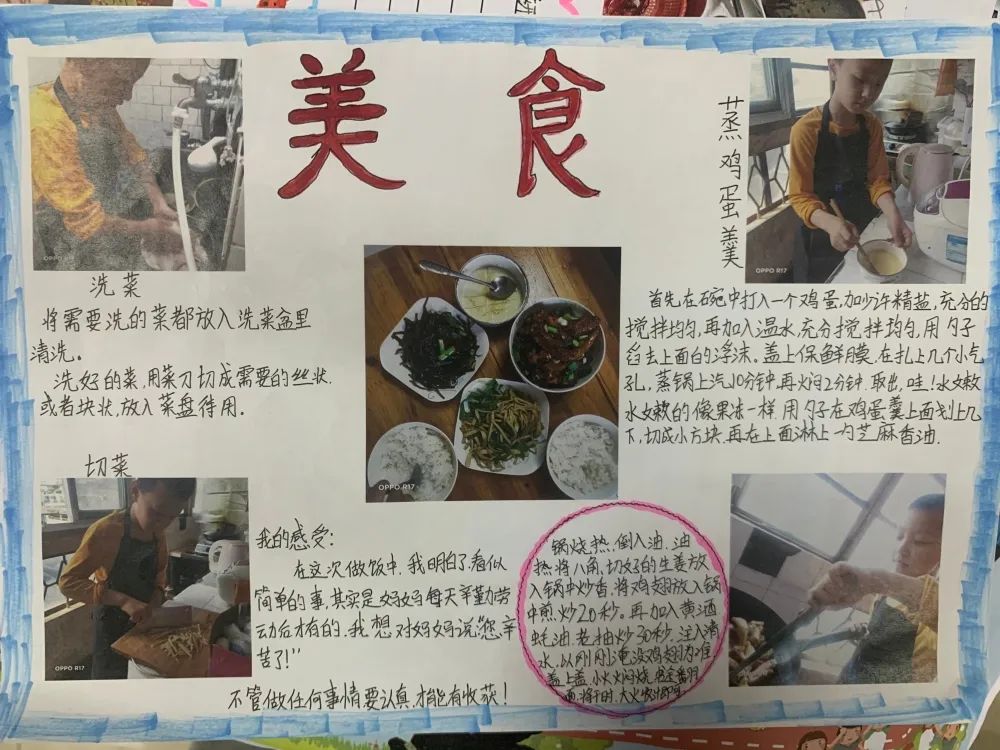 美食
洗菜
将需要洗的菜都放入洗菜盆里
清洗。
洗好的菜,用菜刀切成需要的丝状.
或者块状,放入菜盘待用.
切菜
蒸鸡蛋羹
首先在碗中打入一个鸡蛋,加少许精盐,充分的
搅拌均匀,再加入温水,充分搅拌均匀,用勺子
舀去上面白的浮沫.盖上保鲜膜.在扎上几个小气
孔,蒸锅上汽10分钟.再火焖2分钟.取出.哇!水嫩
水嫩的像果冻一样.用勺子在鸡蛋羹上面划上几
下,切成小方块.再在上面淋上一内芝麻香油.
我的感受:
在这次做饭中.我明白了.看似
简单的事.其实是妈妈每天辛勤劳
动后才有的.我想对妈妈说"您辛
苦了!"
不管做任何事情要认真.才能有收获!
锅烧热.倒入油.油
热.将八角.切好的生姜放
入锅中炒香.将鸡翅放入锅
中煎.炒20秒。再加入黄酒
蚝油.老抽炒30秒.注入清
水.以刚刚淹没鸡翅为准
盖上盖.小火焖烧.
大火
OPPO R17
OPPO R17
OPPO R17
OPPO R17